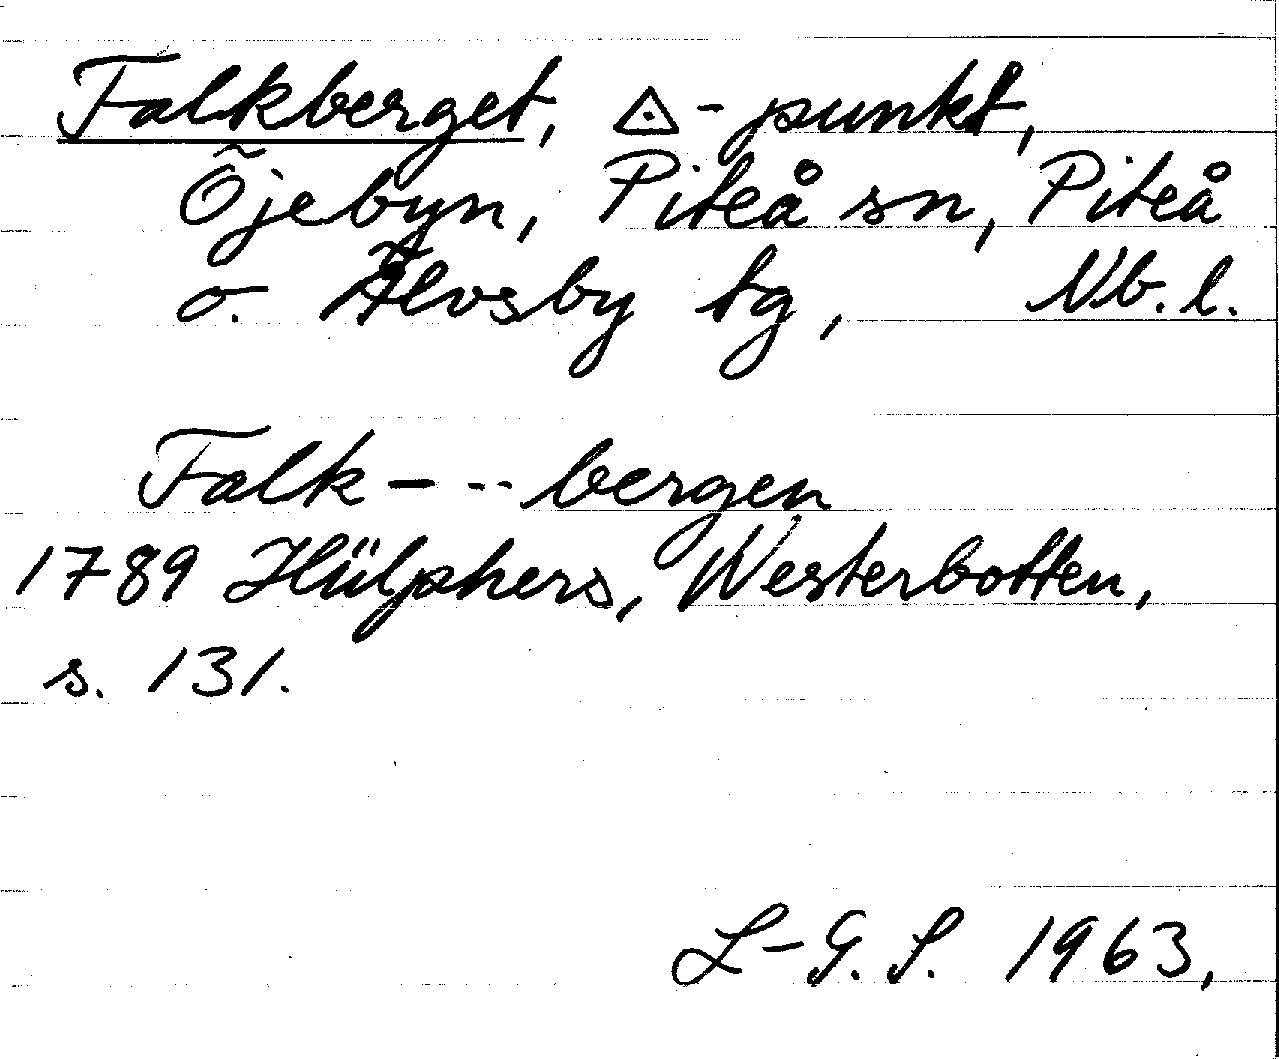 Falkberget, △-punkt,
Öjebyn, Piteå sn, Piteå
o. Älvsby tg, Nb. l.
Falk - -- bergen
1789 Hülphers, Westerbotten,
s. 131.
L-G. S. 1963,